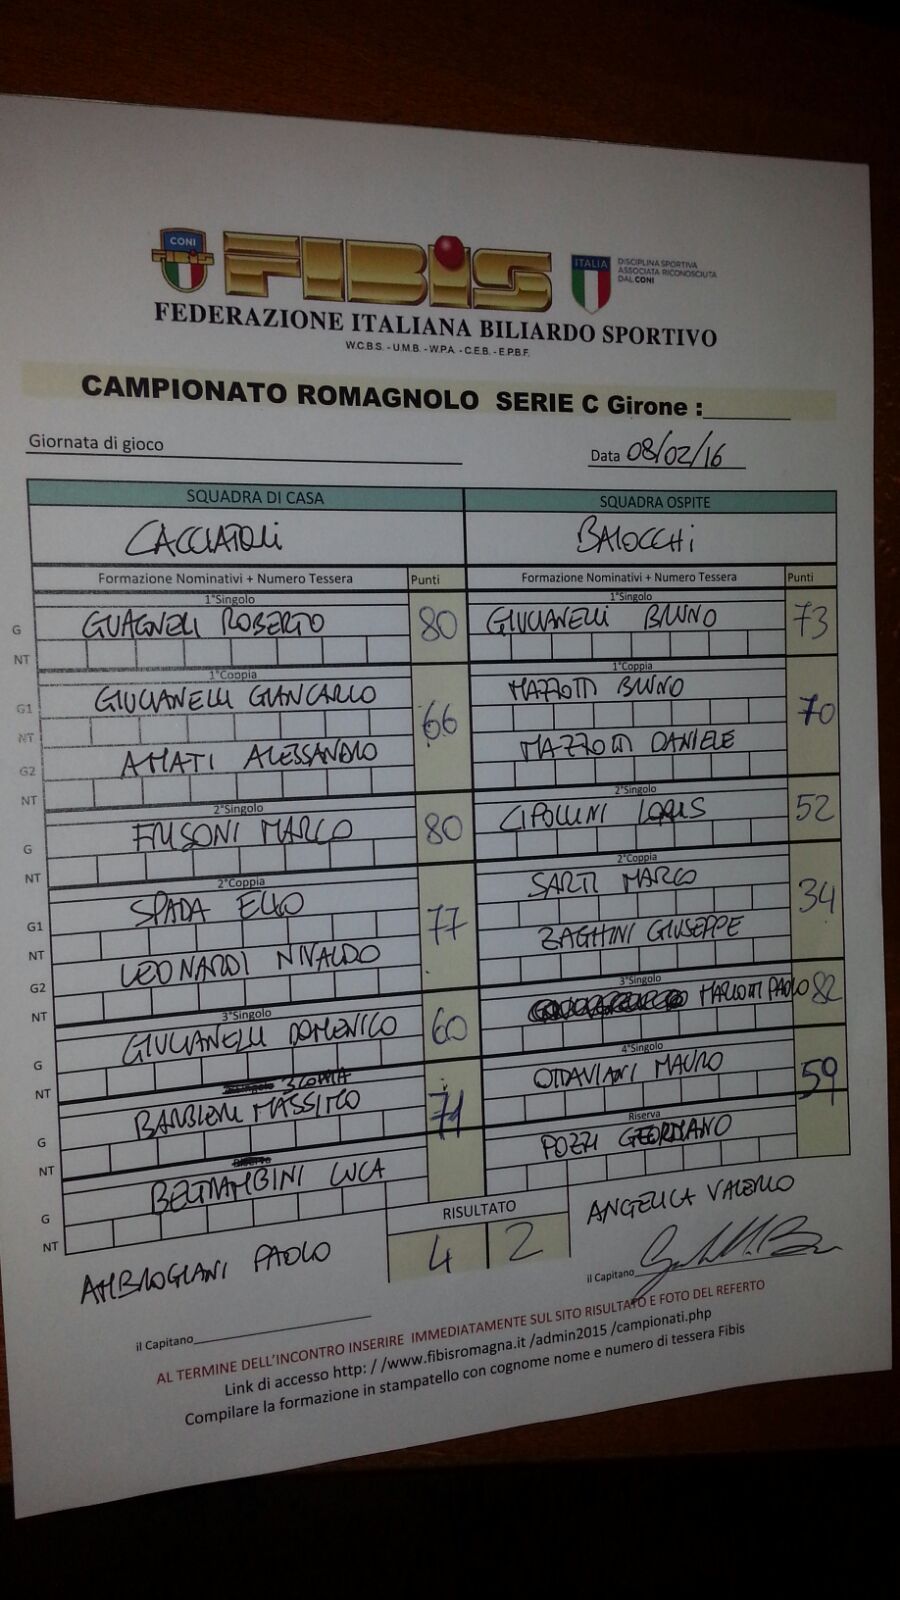 CONI
FIBIS
FIBIS
ITALIA
DISCIPLINA SPORTIVA
ASSOCIATA RICONOSCIUTA
DAL CONI
FEDERAZIONE ITALIANA BILIARDO SPORTIVO
W.C.B.S. - U.M.B. - W.P.A. - C.E.B. - E.P.B.F.
CAMPIONATO ROMAGNOLO SERIE C Girone :
Giornata di gioco
Data 08/02/16
SQUADRA DI CASA SQUADRA OSPITE
CACCIATORI BAIOCCHI
Formazione Nominativi + Numero Tessera Punti Formazione Nominativi + Numero Tessera Punti
1°Singolo 1°Singolo
G GUAGNELI ROBERTO 80 GIULIANELLI BRUNO 73
NT
1°Coppia 1°Coppia
G1 GIULIANELLI GIANCARLO 66 MAZZOTTI BRUNO 70
NT
G2 AMATI ALESSANDRO MAZZOTTI DANIELE
NT
2°Singolo 2°Singolo
G FRISONI MARCO 80 CIPOLLINI LORIS 52
NT
2°Coppia 2°Coppia
G1 SPADA ELIO 77 SARTI MARCO 34
NT
G2 LEONARDI NIVALDO ZAGHINI GIUSEPPE
NT
3°Singolo 3°Singolo
G GIULIANELLI DOMENICO 60 MARIOTTI PAOLO 82
NT
3 COPPIA 4°Singolo
G BARBIERI MASSIMO 71 OTTAVIANI MAURO 59
NT
Riserva Riserva
G BELTRAMBINI LUCA POZZI GEORDANO
NT
RISULTATO
4 2
AMBROGIANI PAOLO ANGELICA VALERIO
il Capitano
il Capitano
AL TERMINE DELL'INCONTRO INSERIRE IMMEDIATAMENTE SUL SITO RISULTATO E FOTO DEL REFERTO
Link di accesso http: / /www.fibisromagna.it /admin2015 /campionati.php
Compilare la formazione in stampatello con cognome nome e numero di tessera Fibis